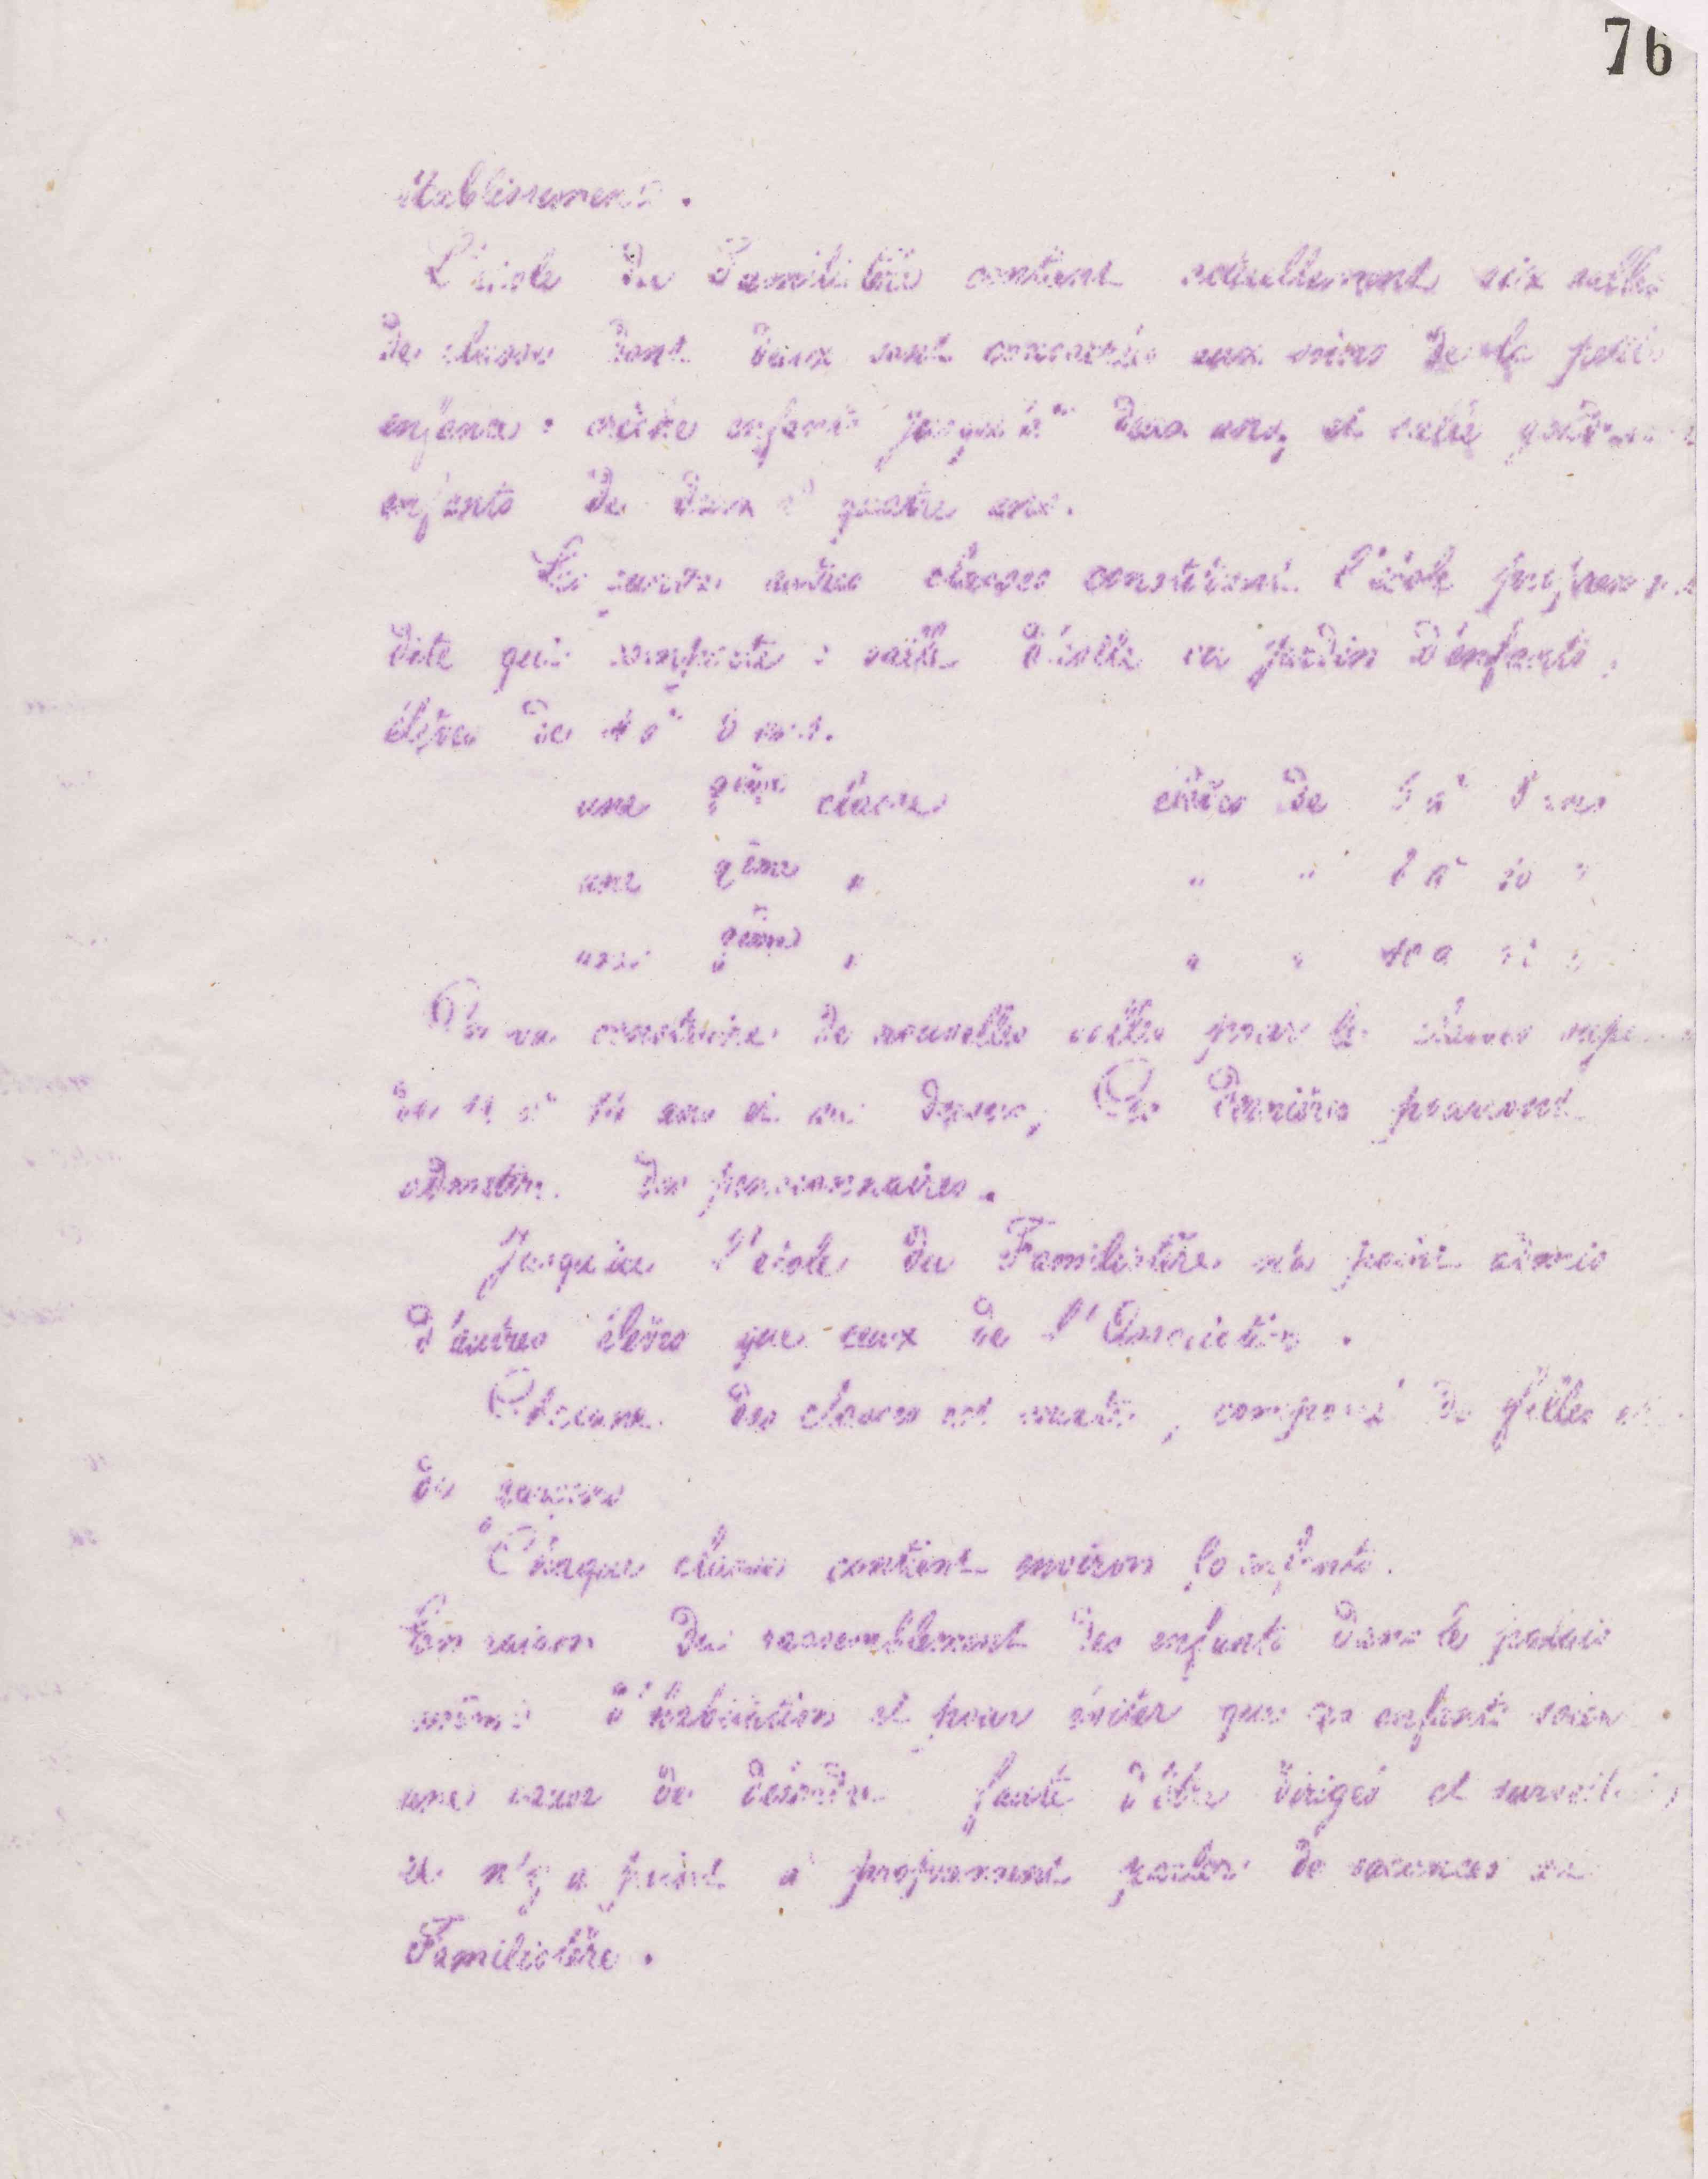 76
établissement.
L'école du Familistère contient actuellement six salles
de classe dont deux sont consacrées aux soins de la petite
enfance : crèche enfants jusqu'à deux ans, et salle gardienne
enfants de deux à quatre ans.
Les quatre autres classes constituent l'école proprement
dite qui comporte : salle d'asile ou jardin d'enfants,
élèves de 4 à 6 ans.
une classe élèves de 6 à 8 ans
une " " " 8 à 10 "
une " " " 10 à "
On va construire de nouvelles salles pour les classes
de 11 à 14 ans et au dessus, Ces dernières pourront
admettre des pensionnaires.
Jusqu'ici l'école du Familistère n'a point admis
d'autres élèves que ceux de l'Association.
Chacune des classes est mixte, composé de filles et
de garçons
Chaque classe contient environ 50 enfants.
En raison du rassemblement des enfants dans le palais
même d'habitation et pour éviter que ces enfants soient
une cause de désordre faute d'être dirigés et surveillés,
il n'y a point à proprement parler de vacances au
Familistère.